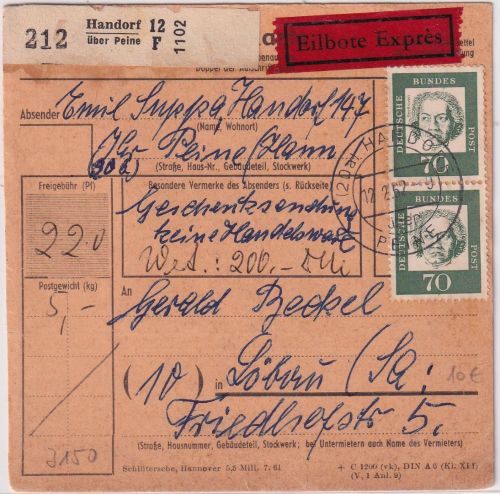 212 Handorf über Peine 12 F 1102
Eilbote Exprès
Absender Emil Suppa, Handorf 147
(Name, Wohnort)
über Peine/Hann
(20a)
(Straße, Haus-Nr., Gebäudeteil, Stockwerk)
Freigebühr (Pf)
220
Postgewicht (kg)
5,-
3150
Besondere Vermerke des Absenders (s. Rückseite)
Geschenksendung
keine Handelsware
Wert.: 200,- DM
DEUTSCHE BUNDES POST 70
DEUTSCHE BUNDES POST 70
(20a) HANDORF
12.2.62
An
Gerald Beckel
(10) in Löbau (Sa.
10€
Friedhofstr 5.
(Straße, Hausnummer, Gebäudeteil, Stockwerk; bei Untermietern auch Name des Vermieters)
Schlütersche, Hannover 5,5 Mill. 7. 61
+ C 1200 (vk), DIN A 6 (Kl. XI f)
(V, 1 Anl. 9)